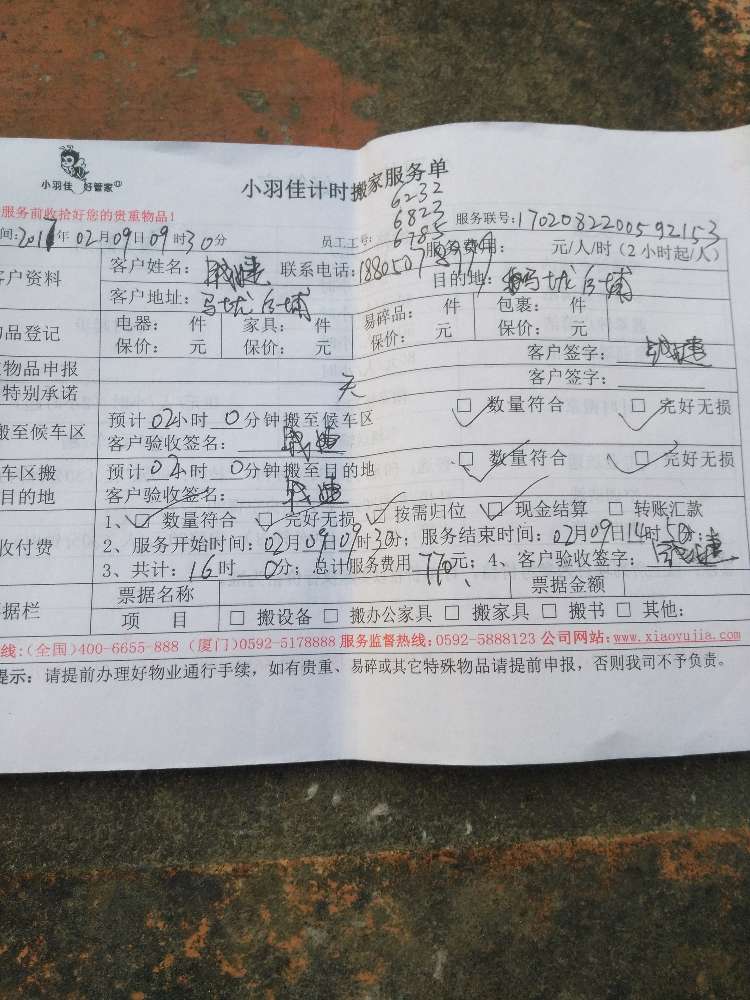 小羽佳 好管家
小羽佳计时搬家服务单
服务前收拾好您的贵重物品!
6232
6823
6785
间:2017年02月09日09时30分 员工工号: 服务联号:1702082200592153
服务费用: 元/人/时(2小时起/人)
客户资料 客户姓名: 联系电话: 目的地:
客户地址:
品登记 电器: 件 家具: 件 易碎品: 件 包裹: 件
保价: 元 保价: 元 保价: 元 保价: 元
物品申报 客户签字:
特别承诺 无 客户签字:
搬至候车区 预计02小时0分钟搬至候车区 数量符合 完好无损
客户验收签名:
车区搬 预计02小时0分钟搬至目的地 数量符合 完好无损
目的地 客户验收签名:
收付费 1、 数量符合 完好无损 按需归位 现金结算 转账汇款
2、服务开始时间:02月09日09时30分; 服务结束时间:02月09日14时50分;
3、共计:16时0分; 总计服务费用770元; 4、客户验收签字:
据栏 票据名称 票据金额
项 目 搬设备 搬办公家具 搬家具 搬书 其他:
线:(全国)400-6655-888 (厦门)0592-5178888 服务监督热线:0592-5888123 公司网站:www.xiaoyujia.com
提示: 请提前办理好物业通行手续,如有贵重、易碎或其它特殊物品请提前申报,否则我司不予负责。